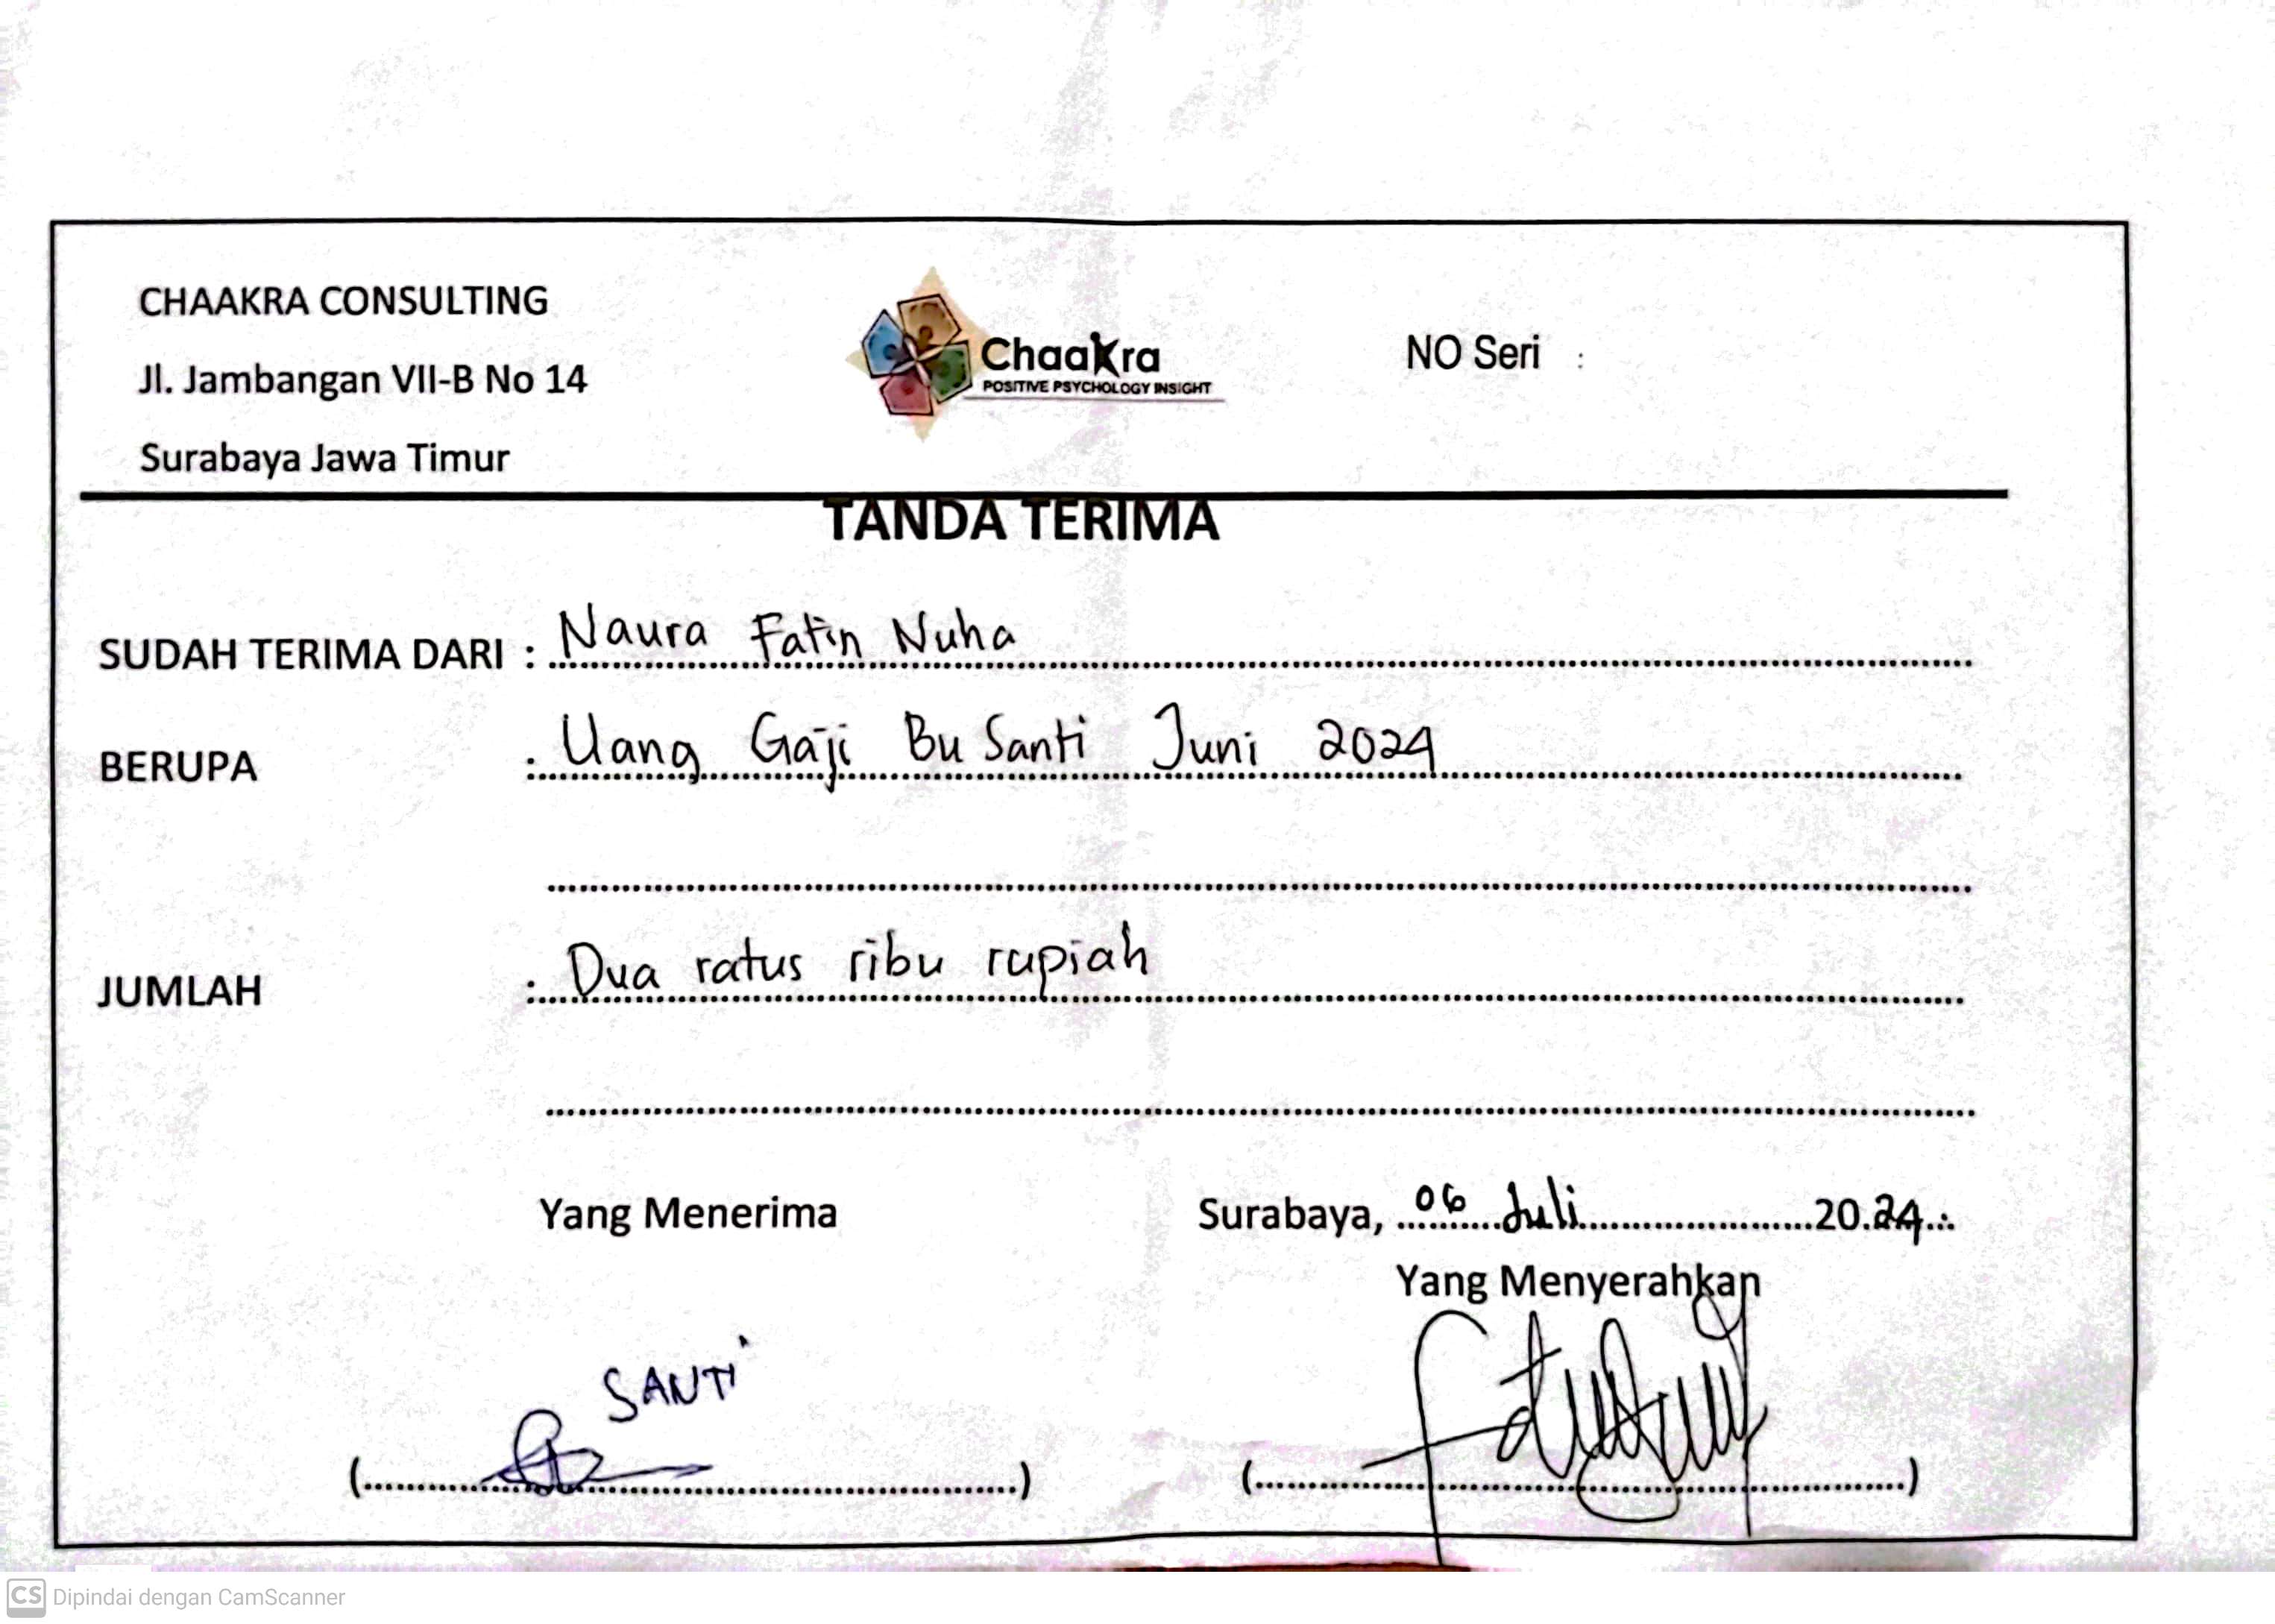 CHAAKRA CONSULTING
Jl. Jambangan VII-B No 14
Surabaya Jawa Timur
ChaaKra
POSITIVE PSYCHOLOGY INSIGHT
NO Seri :
TANDA TERIMA
SUDAH TERIMA DARI : Naura Fatin Nuha
BERUPA : Uang Gaji Bu Santi Juni 2024
JUMLAH : Dua ratus ribu rupiah
Yang Menerima
Surabaya, 06 Juli 20.24
Yang Menyerahkan
SANTI
(....................)
(....................)
CS Dipindai dengan CamScanner